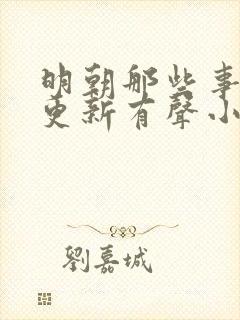 明朝那些事
更新有聲小
劉嘉城